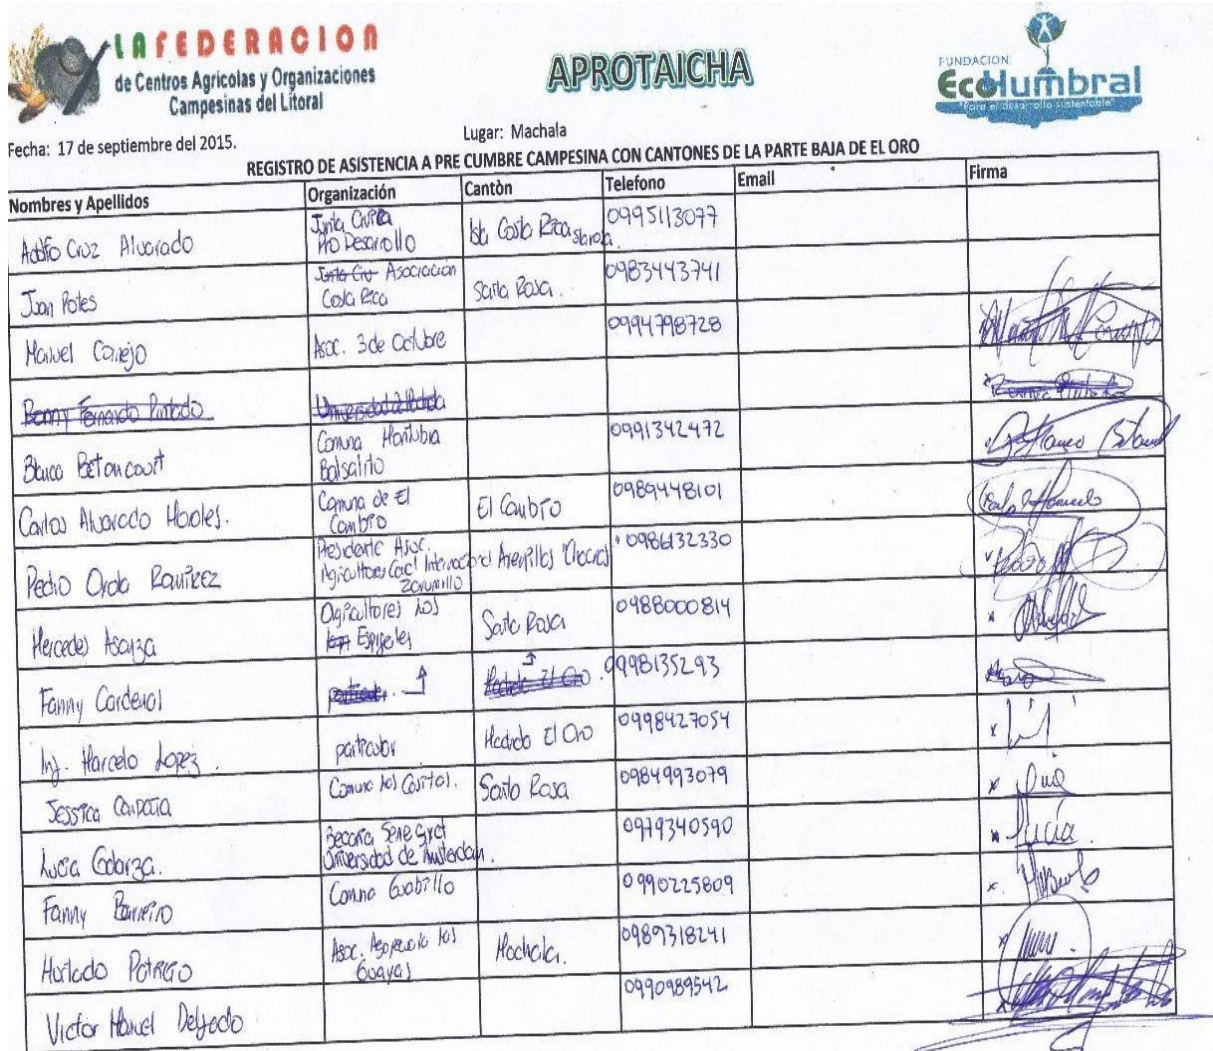 LA FEDERACION
de Centros Agrícolas y Organizaciones
Campesinas del Litoral
APROTAICHA
FUNDACION
EcoHumbral
"Para el desarrollo sustentable"
Fecha: 17 de septiembre del 2015.
Lugar: Machala
REGISTRO DE ASISTENCIA A PRE CUMBRE CAMPESINA CON CANTONES DE LA PARTE BAJA DE EL ORO
Nombres y Apellidos Organización Cantòn Telefono Email Firma
Adolfo Cruz Alvarado Junta Civica Pro Desarrollo Isla Costa Rica 0995113077
Juan Poles Asociación Costa Rica Santa Rosa. 0983443741
Manuel Conejo Asoc. 3 de Octubre 0994798728
Benny Fernando Pintado
Blanco Betancourt Comuna Montubia Balsalito 0991342472
Carlos Alvarado Comuna de El Cambio El Cambio 0989448101
Pedro Ordo Ramirez Presidente Asoc. Agricultores Canal Internacional Zarumilla Arenillas Chacras 0986132330
Mercedes Asanza Agricultores Los Santa Rosa 0988000814
Fanny Cardenal 0998135293
Inj. Marcelo Lopez. particular Machala El Oro 0998427054
Jessica Comuna los Santa Rosa 0984993079
Lucia Galarza. Becaria Senescyt Universidad de Amsterdam. 0979340590
Fanny Barreiro Comuna 0990225809
Hurtado Patricio Asoc. los Guayas Machala. 0989318241
Victor Manuel Delgado 0990989542